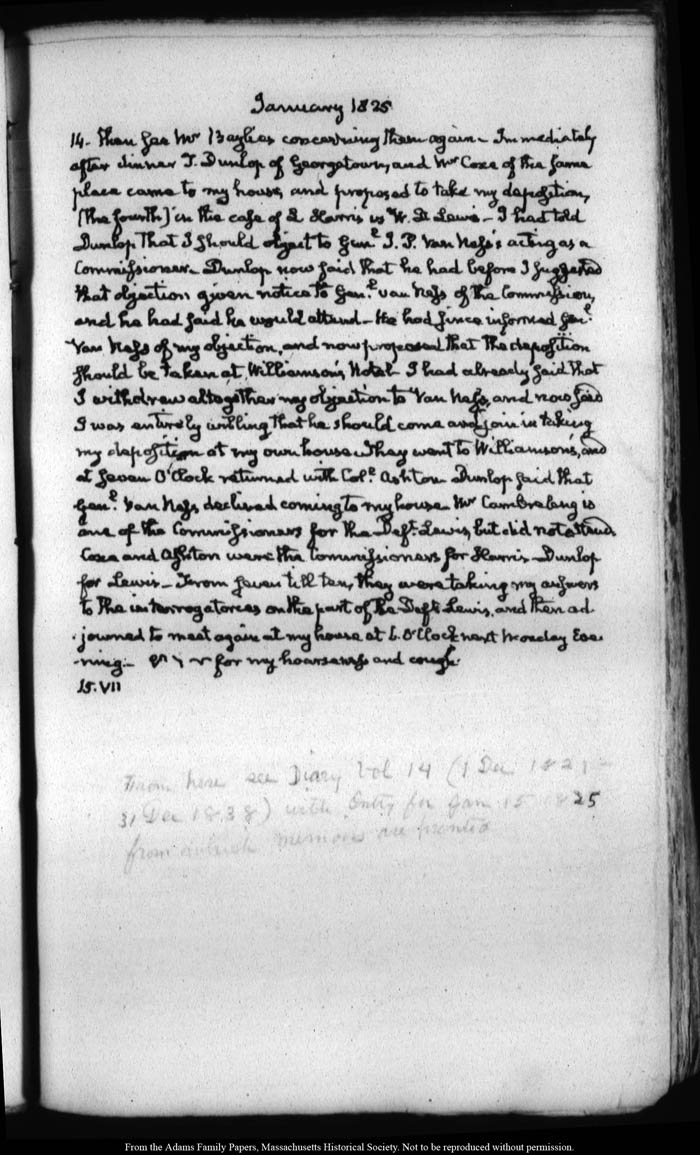 January 1825
14. than see Mr Baylies concerning them again — Immediately
after dinner J. Dunlop of Georgetown, and Mr Coxe of the same
place came to my house, and proposed to take my deposition,
(the fourth) in the case of L Harris vs W. D. Lewis — I had told
Dunlop that I should object to Genl. J. P. Van Ness's acting as a
Commissioner — Dunlop now said that he had before I suggested
that objection given notice to Genl. Van Ness of the Commission,
and he had said he would attend — He had since informed Genl.
Van Ness of my objection, and now proposed that the deposition
should be taken at Williamson's Hotel — I had already said that
I withdrew altogether my objection to Van Ness, and now said
I was entirely willing that he should come and join in taking
my deposition at my own house — They went to Williamson's, and
at seven O'Clock returned with Coll. Ashton — Dunlop said that
Genl. Van Ness declined coming to my house — Mr Cambreleng is
one of the Commissioners for the Deft. Lewis, but did not attend.
Coxe and Ashton were the Commissioners for Harris — Dunlop
for Lewis — From seven till ten, they were taking my answers
to the interrogatories on the part of the Deft Lewis, and then ad-
-journed to meet again at my house at 6. O'Clock next Monday Eve-
-ning — for my hoarseness and cough.
15. VII
From here see Diary Vol 14 (1 Dec 1821 –
31 Dec 1838) with Entry for Jan 15 1825
from which memoirs are printed
From the Adams Family Papers, Massachusetts Historical Society. Not to be reproduced without permission.